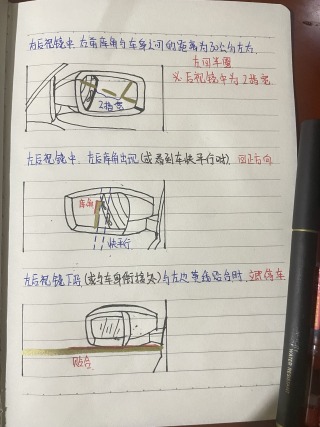 右后视镜中,右前库角与车身之间的距离为30公分左右.
方向半圈
从后视镜中为2指宽
2指宽
左后视镜中,左后库角出现(或看到车快平行时) 回正方向
库角
快平行
左后视镜下沿(或与车身衔接处)与左边黄线贴合时,立即停车
贴合